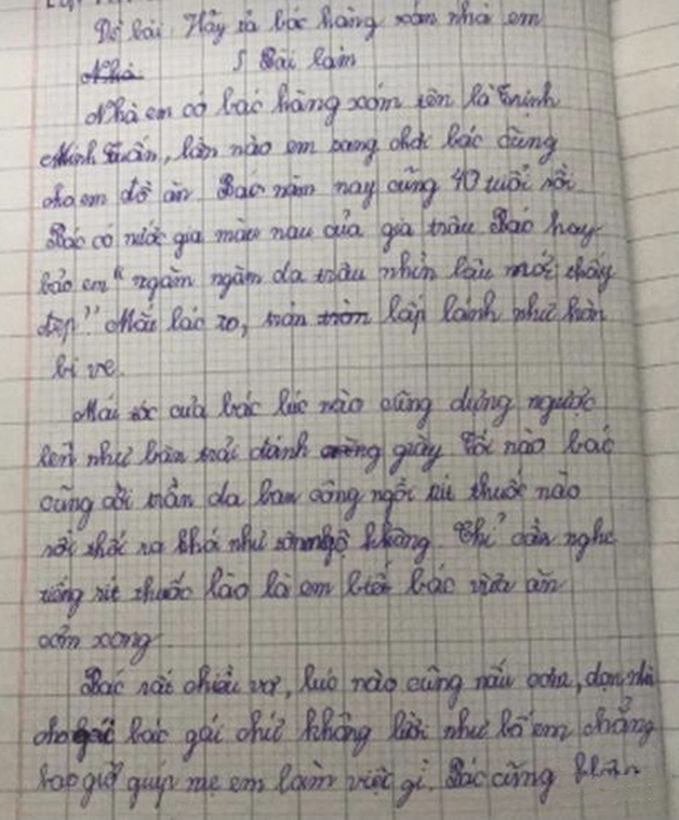 Đề bài: Hãy tả bác hàng xóm nhà em
Bài làm
Nhà em có bác hàng xóm tên là Trịnh
Minh Tuấn, lần nào em sang chơi bác cũng
cho em đồ ăn. Bác năm nay cũng 40 tuổi rồi
Bác có nước gia màu nau của gia trâu Bác hay
bảo em "ngăm ngăm da trâu nhìn lâu mới thấy
đẹp" Mắt bác to, tròn lấp lánh như hòn
bi ve.
Mái tóc của bác lúc nào cũng dựng ngược
lên như bàn trải đánh giày Tối nào bác
cũng cởi trần da ban công ngồi rít thuốc nào
rồi thổi ra khói như khủng. Chỉ cần nghe
tiếng rít thuốc lào là em biết bác vừa ăn
cơm xong
Bác rất chiều vợ, lúc nào cũng nấu cơm, dọn nhà
cho bác gái chứ không lười như bố em chẳng
bao giờ giúp mẹ em làm việc gì. Bác cũng